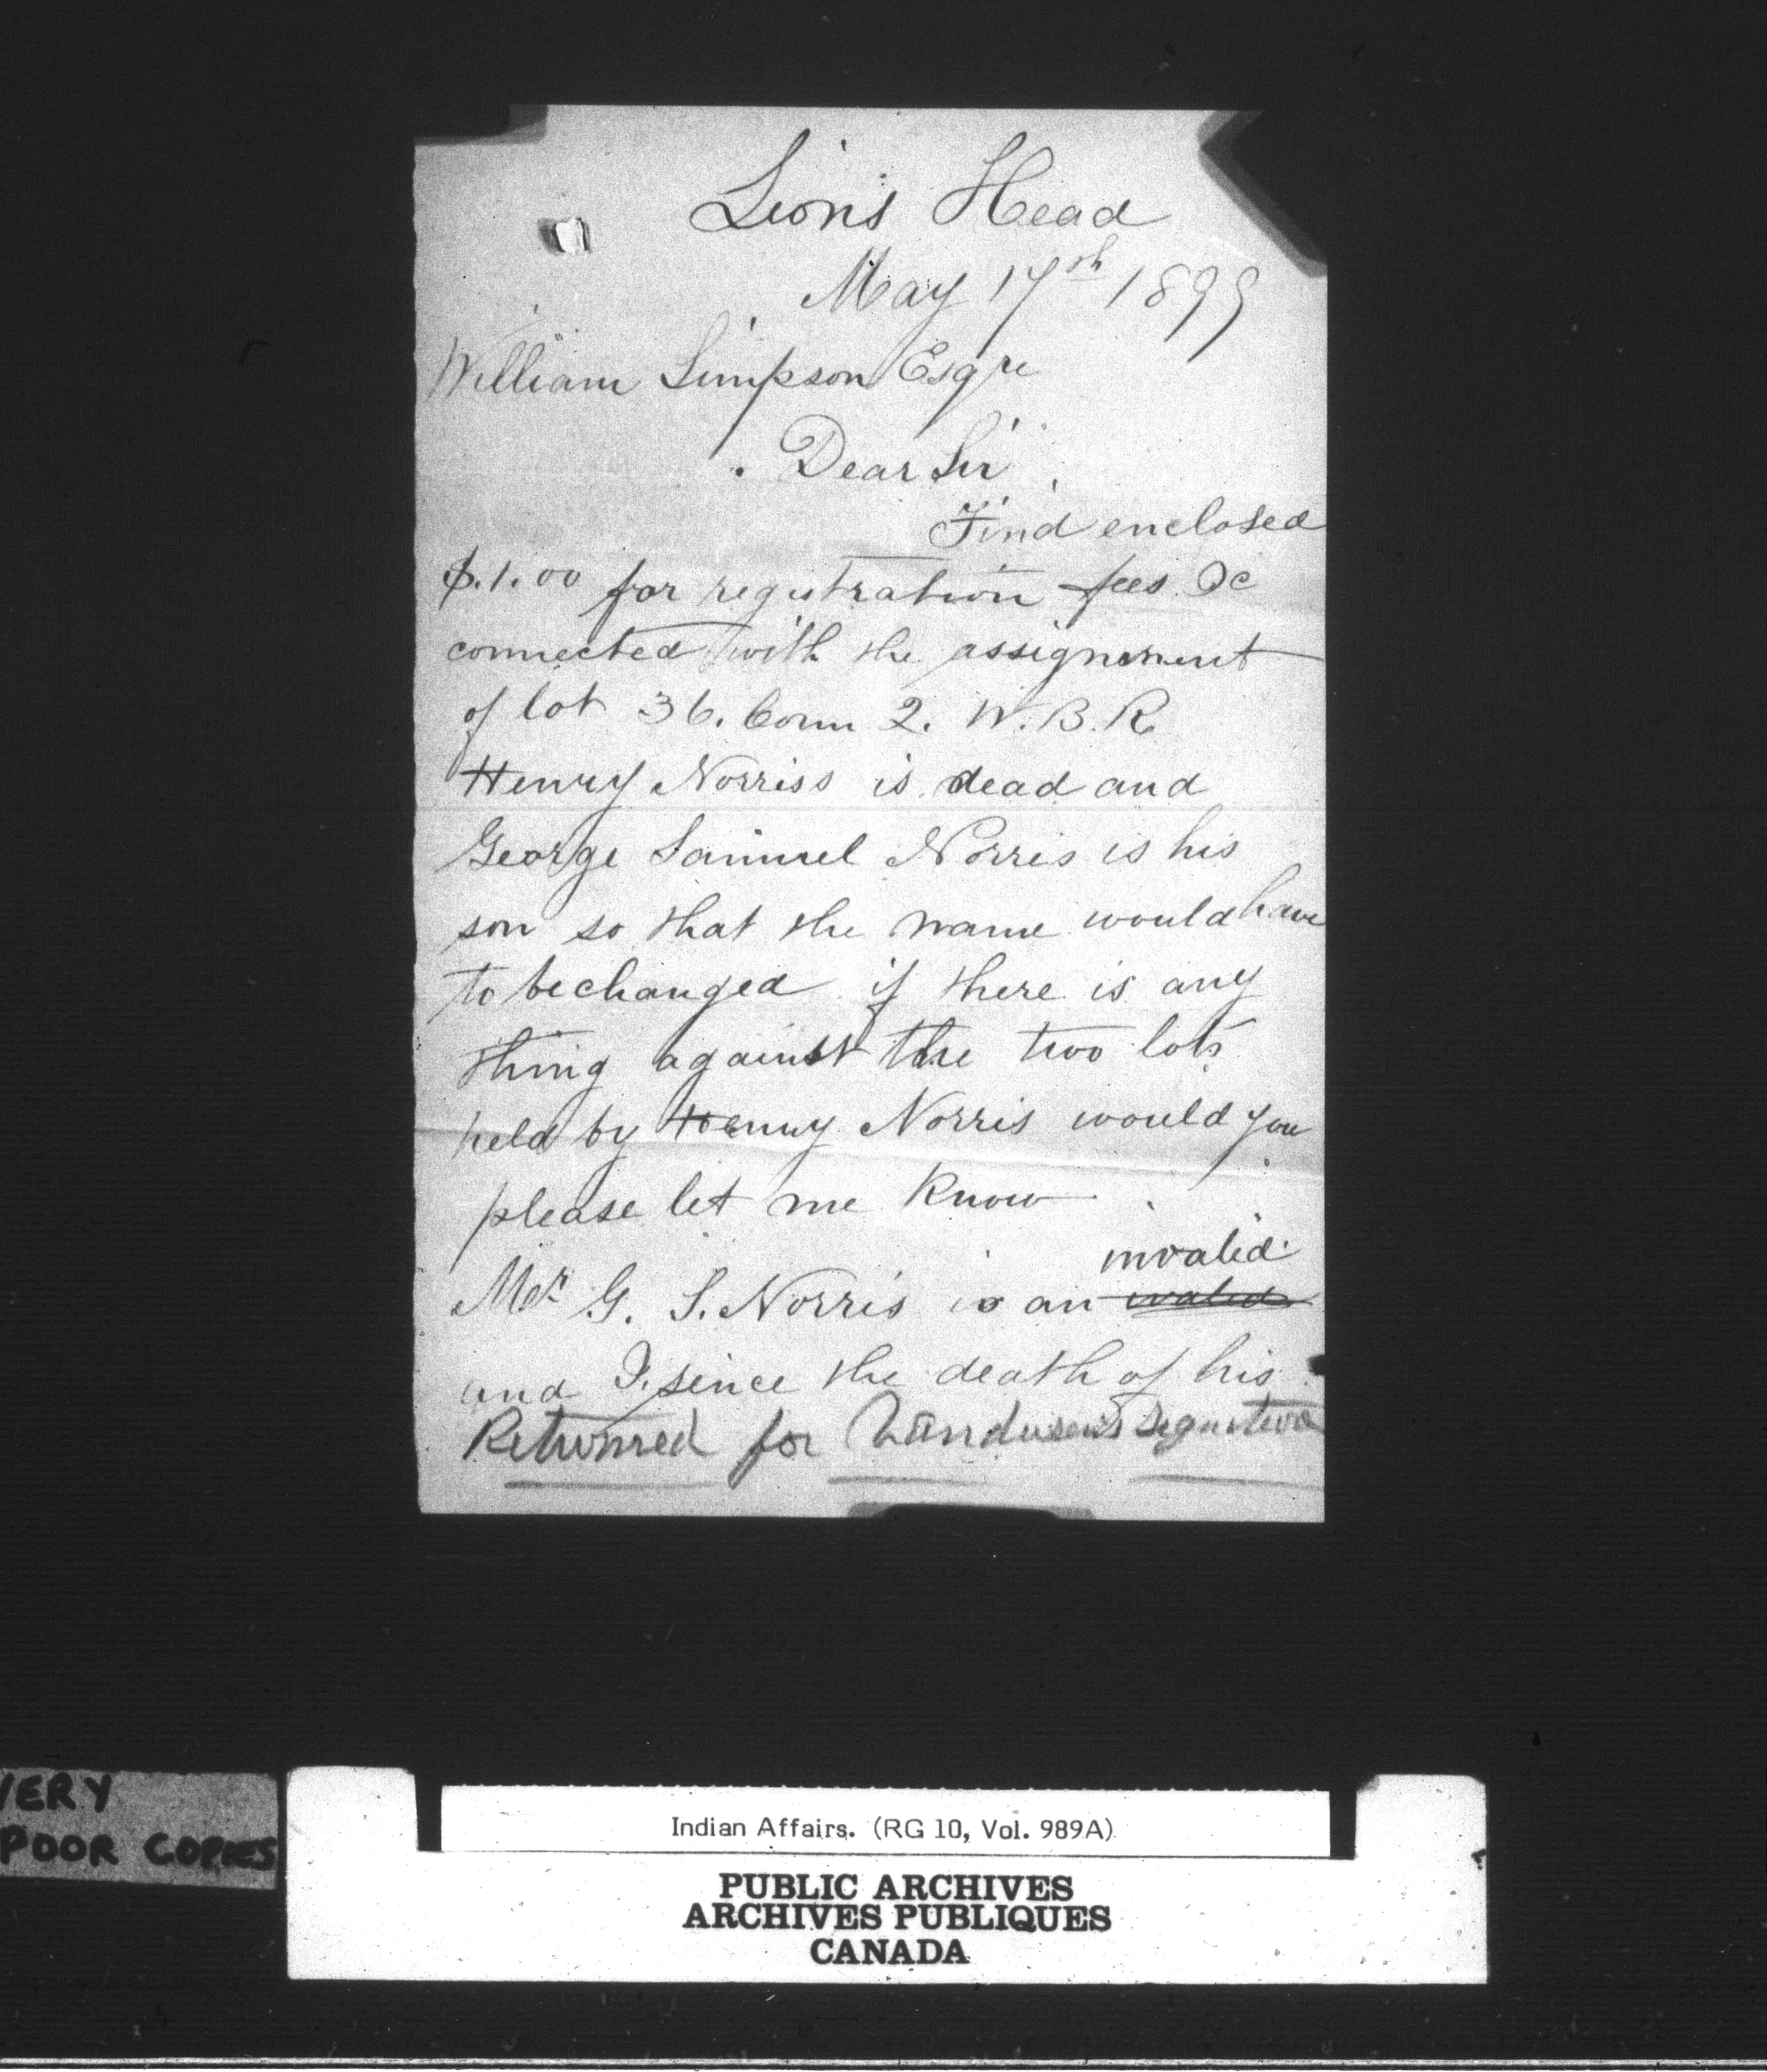 Lion's Head
May 17th 1899
William Simpson Esqre
Dear Sir
Find enclosed
$.1.00 for registration fees &c
connected with the assignment
of lot 36. Conn 2. W.B.R
Henry Norriss is dead and
George Samuel Norris is his
son so that the name would have
to be changed if there is any
thing against the two lots
held by Henry Norris would you
please let me know
invalid
Mr G. S. Norris is an valid
and I, since the death of his
Returned for Vandusen's Signature
VERY
POOR COPIES
Indian Affairs. (RG 10, Vol. 989A)
PUBLIC ARCHIVES
ARCHIVES PUBLIQUES
CANADA